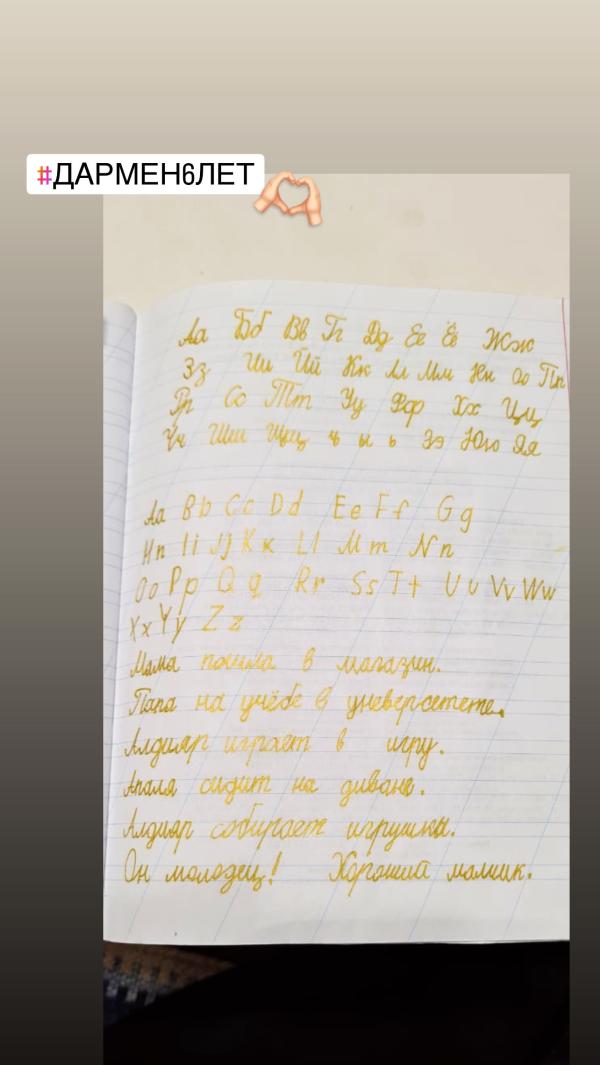 #ДАРМЕН6ЛЕТ
Аа Бб Вв Гг Дд Ее Ёё Жж
Зз Ии Йй Кк Лл Мм Нн Оо Пп
Рр Сс Тт Уу Фф Хх Цц
Чч Шш Щщ ъ ы ь Ээ Юю Яя
Aa Bb Cc Dd Ee Ff Gg
Hh Ii Jj Kk Ll Mm Nn
Oo Pp Qq Rr Ss Tt Uu Vv Ww
Xx Yy Zz
Мама пошла в магазин.
Папа на учёбе в уневерсетете.
Алдияр играет в игру.
Апаля сидит на диване.
Алдияр собирает игрушкы.
Он молодец! Хороший малшик.